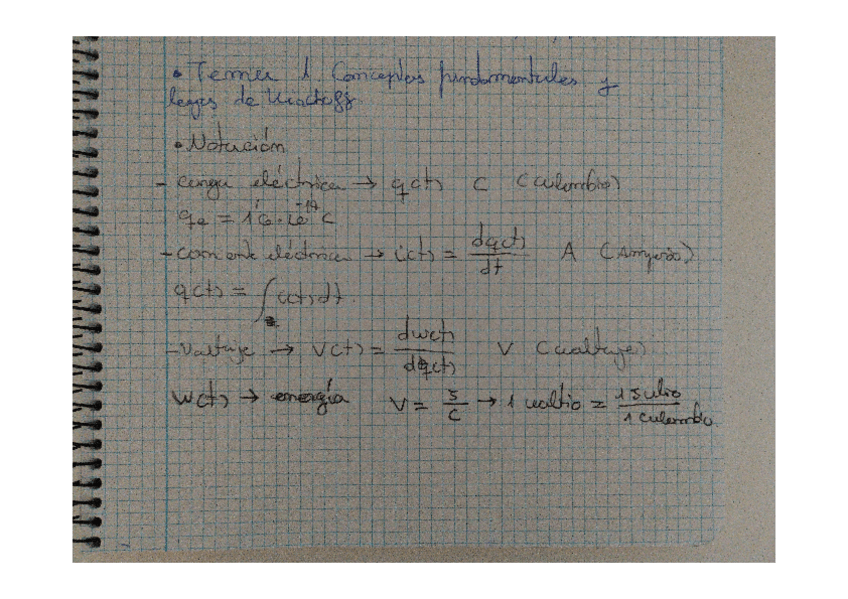 • Tema 1. Conceptos fundamentales y
leyes de
• Notación
- carga eléctrica → q(t) C (culombio)
qe = 1'6·10^-19 C
- corriente eléctrica → i(t) = dq(t)/dt A (Amperio)
q(t) = ∫ i(t) dt
- Voltaje → V(t) = dw(t)/dq(t) V (voltaje)
W(t) → energía V = J/C → 1 voltio = 1 Julio/1 culombio